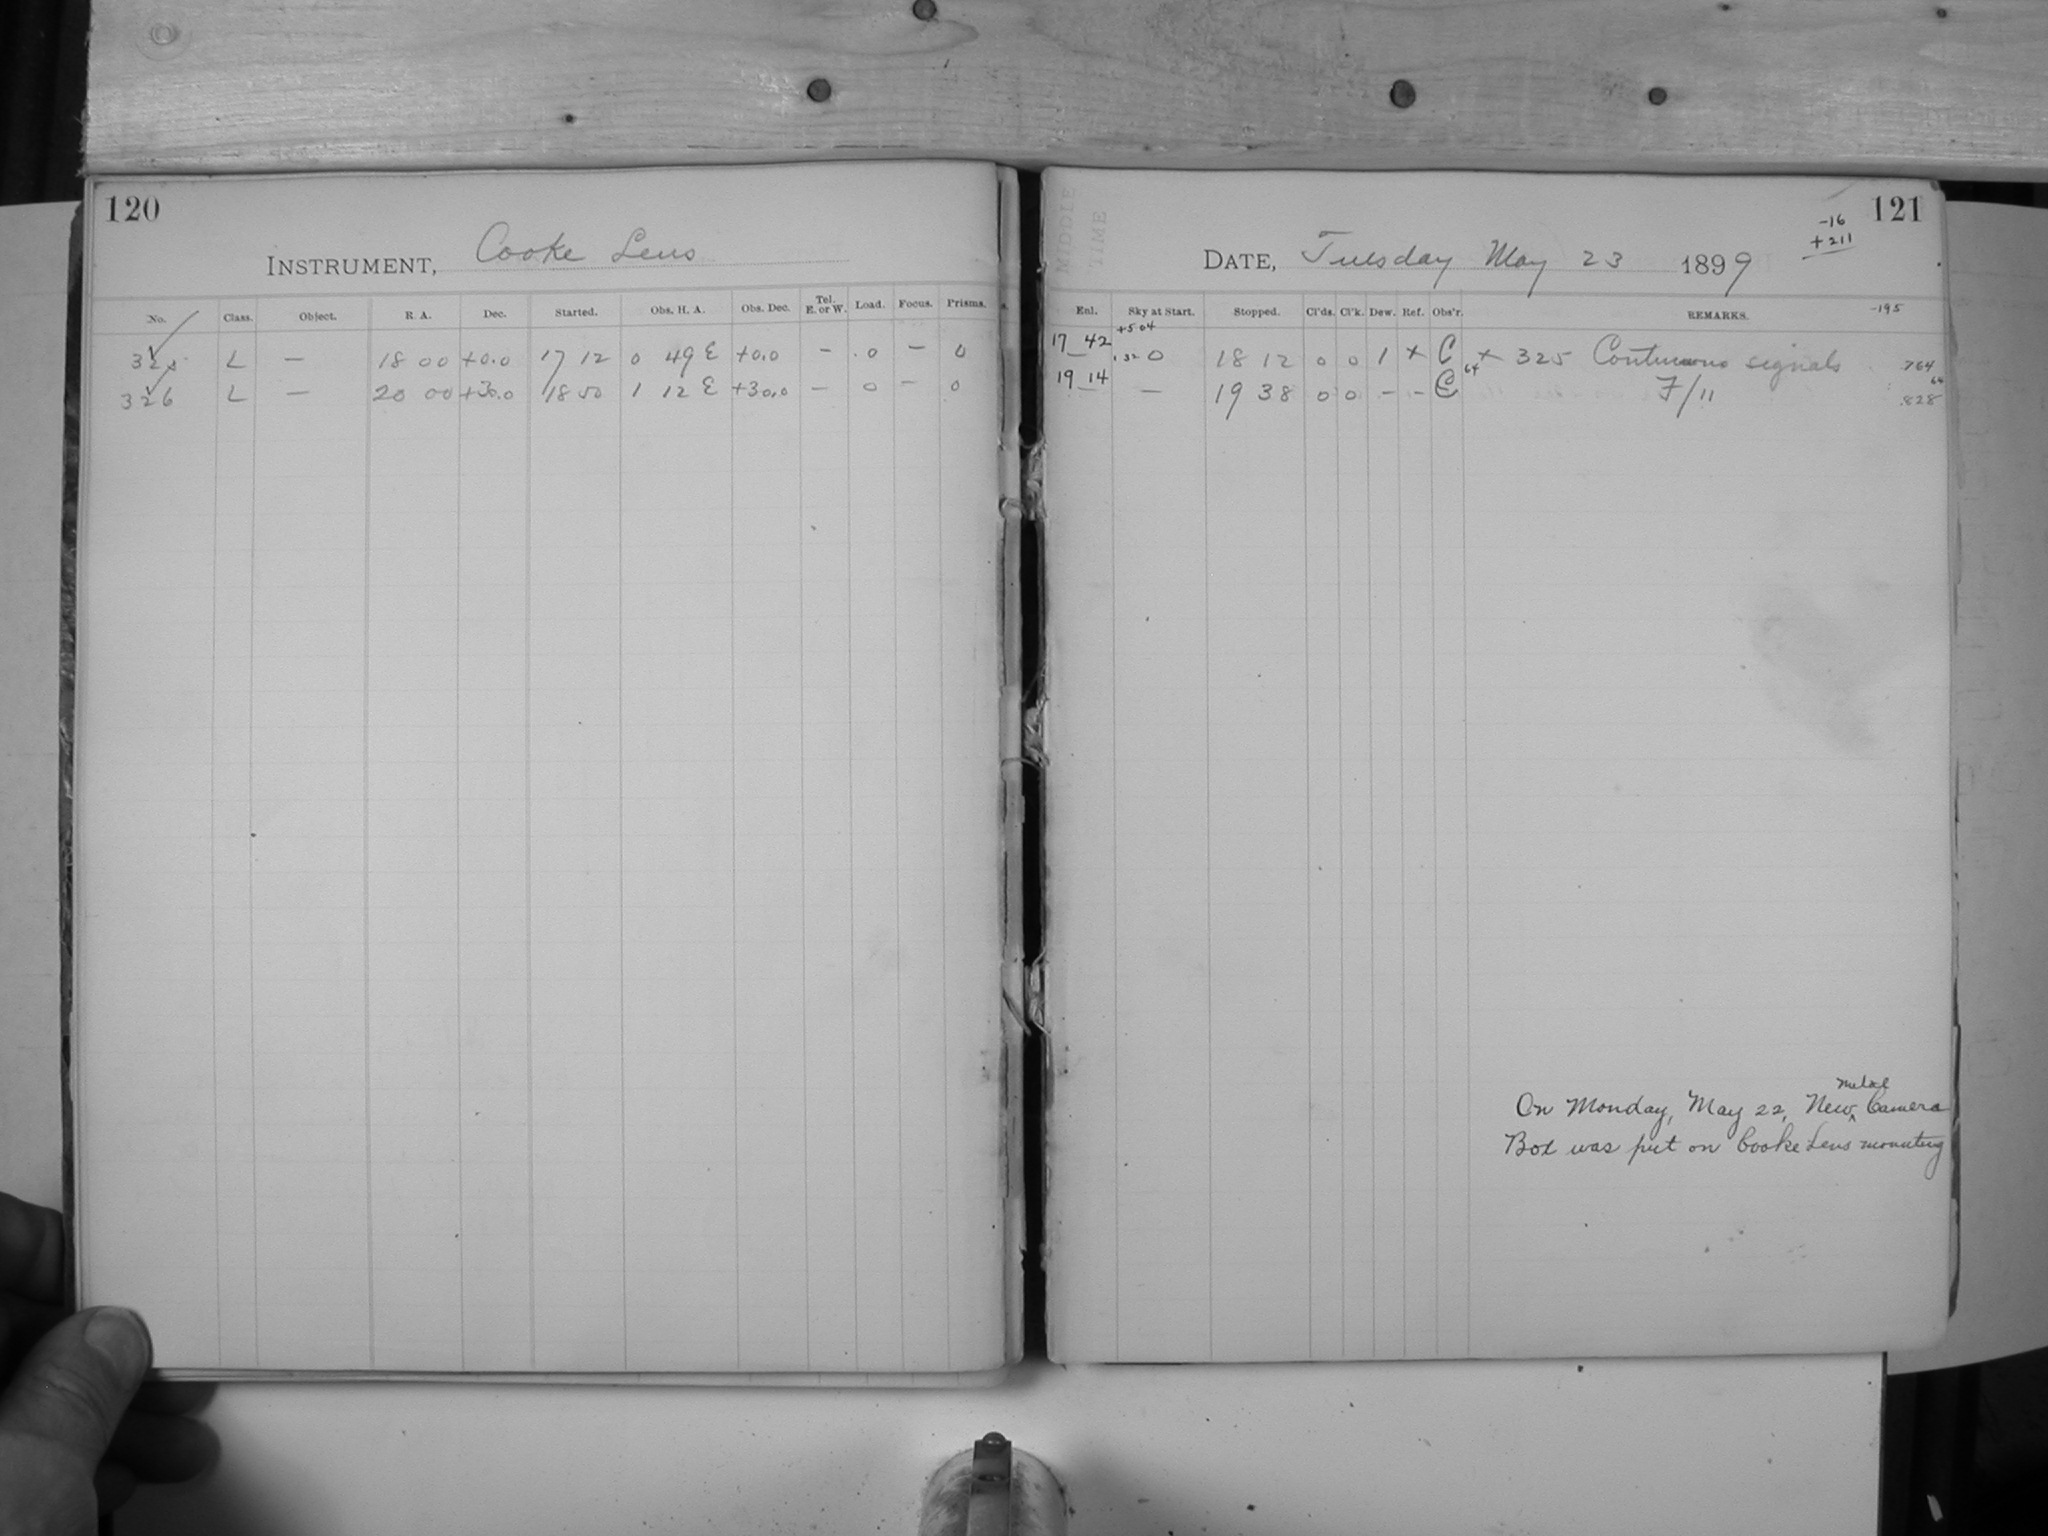 120
INSTRUMENT, Cooke Lens
No. Class. Object. R. A. Dec. Started. Obs. H. A. Obs. Dec. Tel. E. or W. Load. Focus. Prisms.
325 L — 18 00 +0.0 17 12 0 49 E +0.0 — 0 — 0
326 L — 20 00 +30.0 18 50 1 12 E +30.0 — 0 — 0
121
-16
+211
MIDDLE
TIME
DATE, Tuesday May 23 1899
-195
Enl. Sky at Start. Stopped. Cl'ds. Cl'k. Dew. Ref. Obs'r. REMARKS.
+504
17_42 .32 0 18 12 0 0 1 + C 64 + 325 Continuous signals .764
64
19_14 — 19 38 0 0 — — C F/11 .828
metal
On Monday, May 22, New ^ Camera
Box was put on Cooke Lens mounting